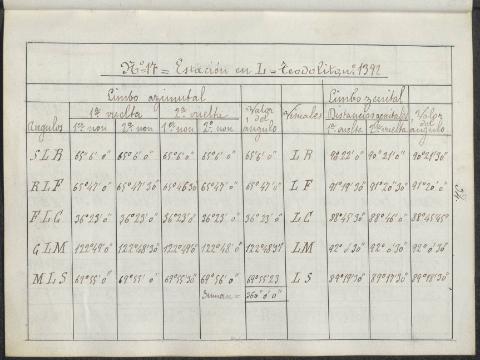 Nº 17 = Estación en L = Teodolito nº 1392
Limbo azimutal Limbo zenital
1ª vuelta 2ª vuelta Valor del ángulo Visuales Distancias zenitales Valor
Angulos 1er non 2º non 1er non 2º non 1ª vuelta 2ª vuelta ángulo
SLR 65° 6' 0" 65° 6' 0" 65° 6' 0" 65° 6' 0" 65° 6' 0" LR 90° 21' 0" 90° 21' 30"
RLF 65° 47' 0" 65° 47' 30" 65° 46' 30" 65° 47' 30" 65° 47' 0" LF 91° 19' 30" 91° 20' 30" 91° 20' 0"
FLC 36° 23' 0" 36° 23' 0" 36° 23' 0" 36° 23' 0" 36° 23' 0" LC 88° 45' 30" 88° 46' 0" 88° 45' 45"
GLM 122° 49' 0" 122° 48' 30" 122° 49' 0" 122° 48' 0" LM 92° 0' 30" 92° 0' 30" 92° 0' 30"
MLS 69° 55' 0" 69° 55' 30" 69° 56' 0" 69° 55' 23 LS 89° 17' 30" 89° 17' 30" 89° 17' 30"
Suman = 360° 0' 0"